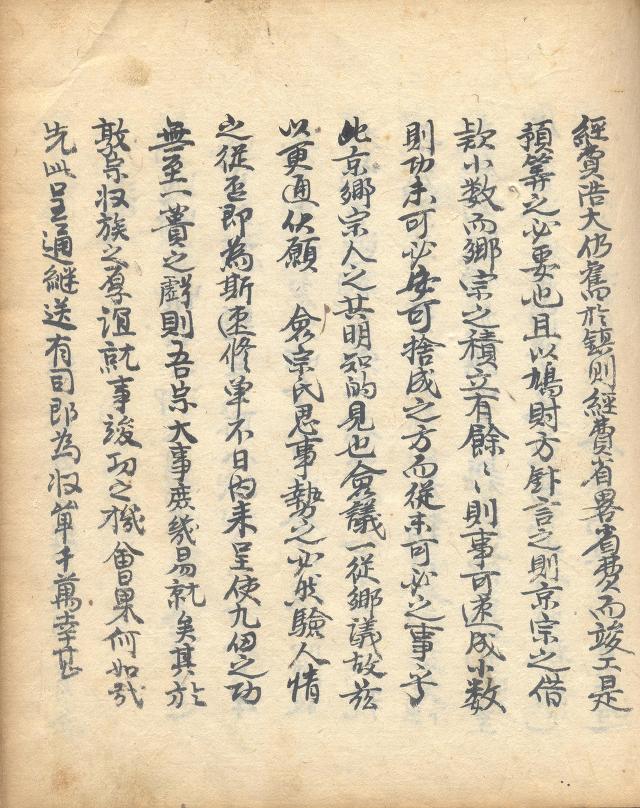 經費浩大仍舊於鎮則經費省畧省費而竣工是
預筭之必要也且以鳩財方針言之則京宗之借
款小數而鄉宗之積立有餘〻〻則事可速成小數
則功未可必安可捨成之方而從未可必之事乎
此京鄉宗人之共明知的見也僉議一從鄉議故茲
以更通伏願 僉宗氏思事勢之必然驗人情
之從否即為斯速修單不日內来呈使九仞之功
無至一蕢之虧則吾宗大事庶幾易就矣其於
敦宗收族之厚誼就事竣功之機會果何如哉
先此呈通継送有司即為收單千萬幸甚